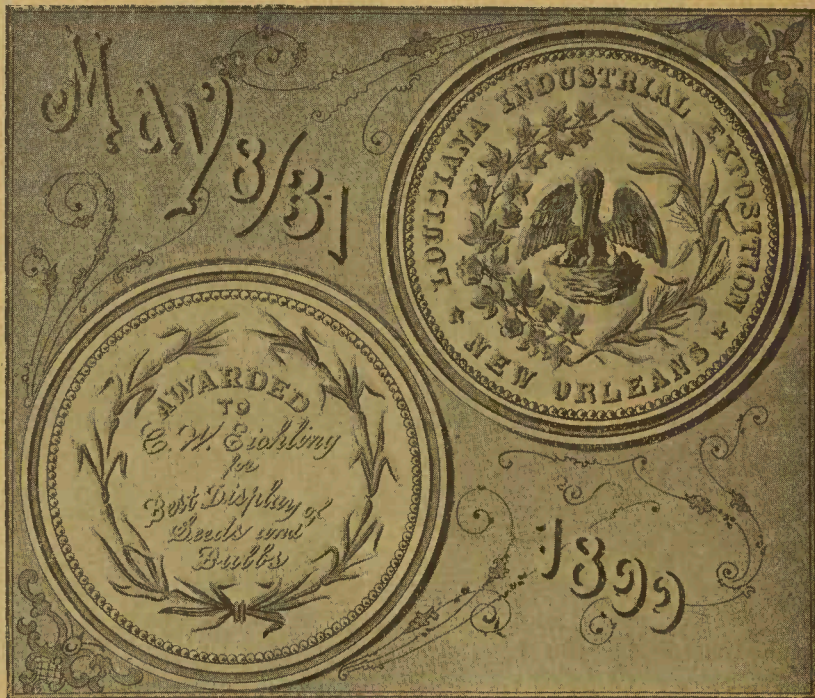 May 8/31
LOUISIANA INDUSTRIAL EXPOSITION
NEW ORLEANS
AWARDED
TO
C. W. Eichling
for
Best Display of
Seeds and
Bulbs
1899